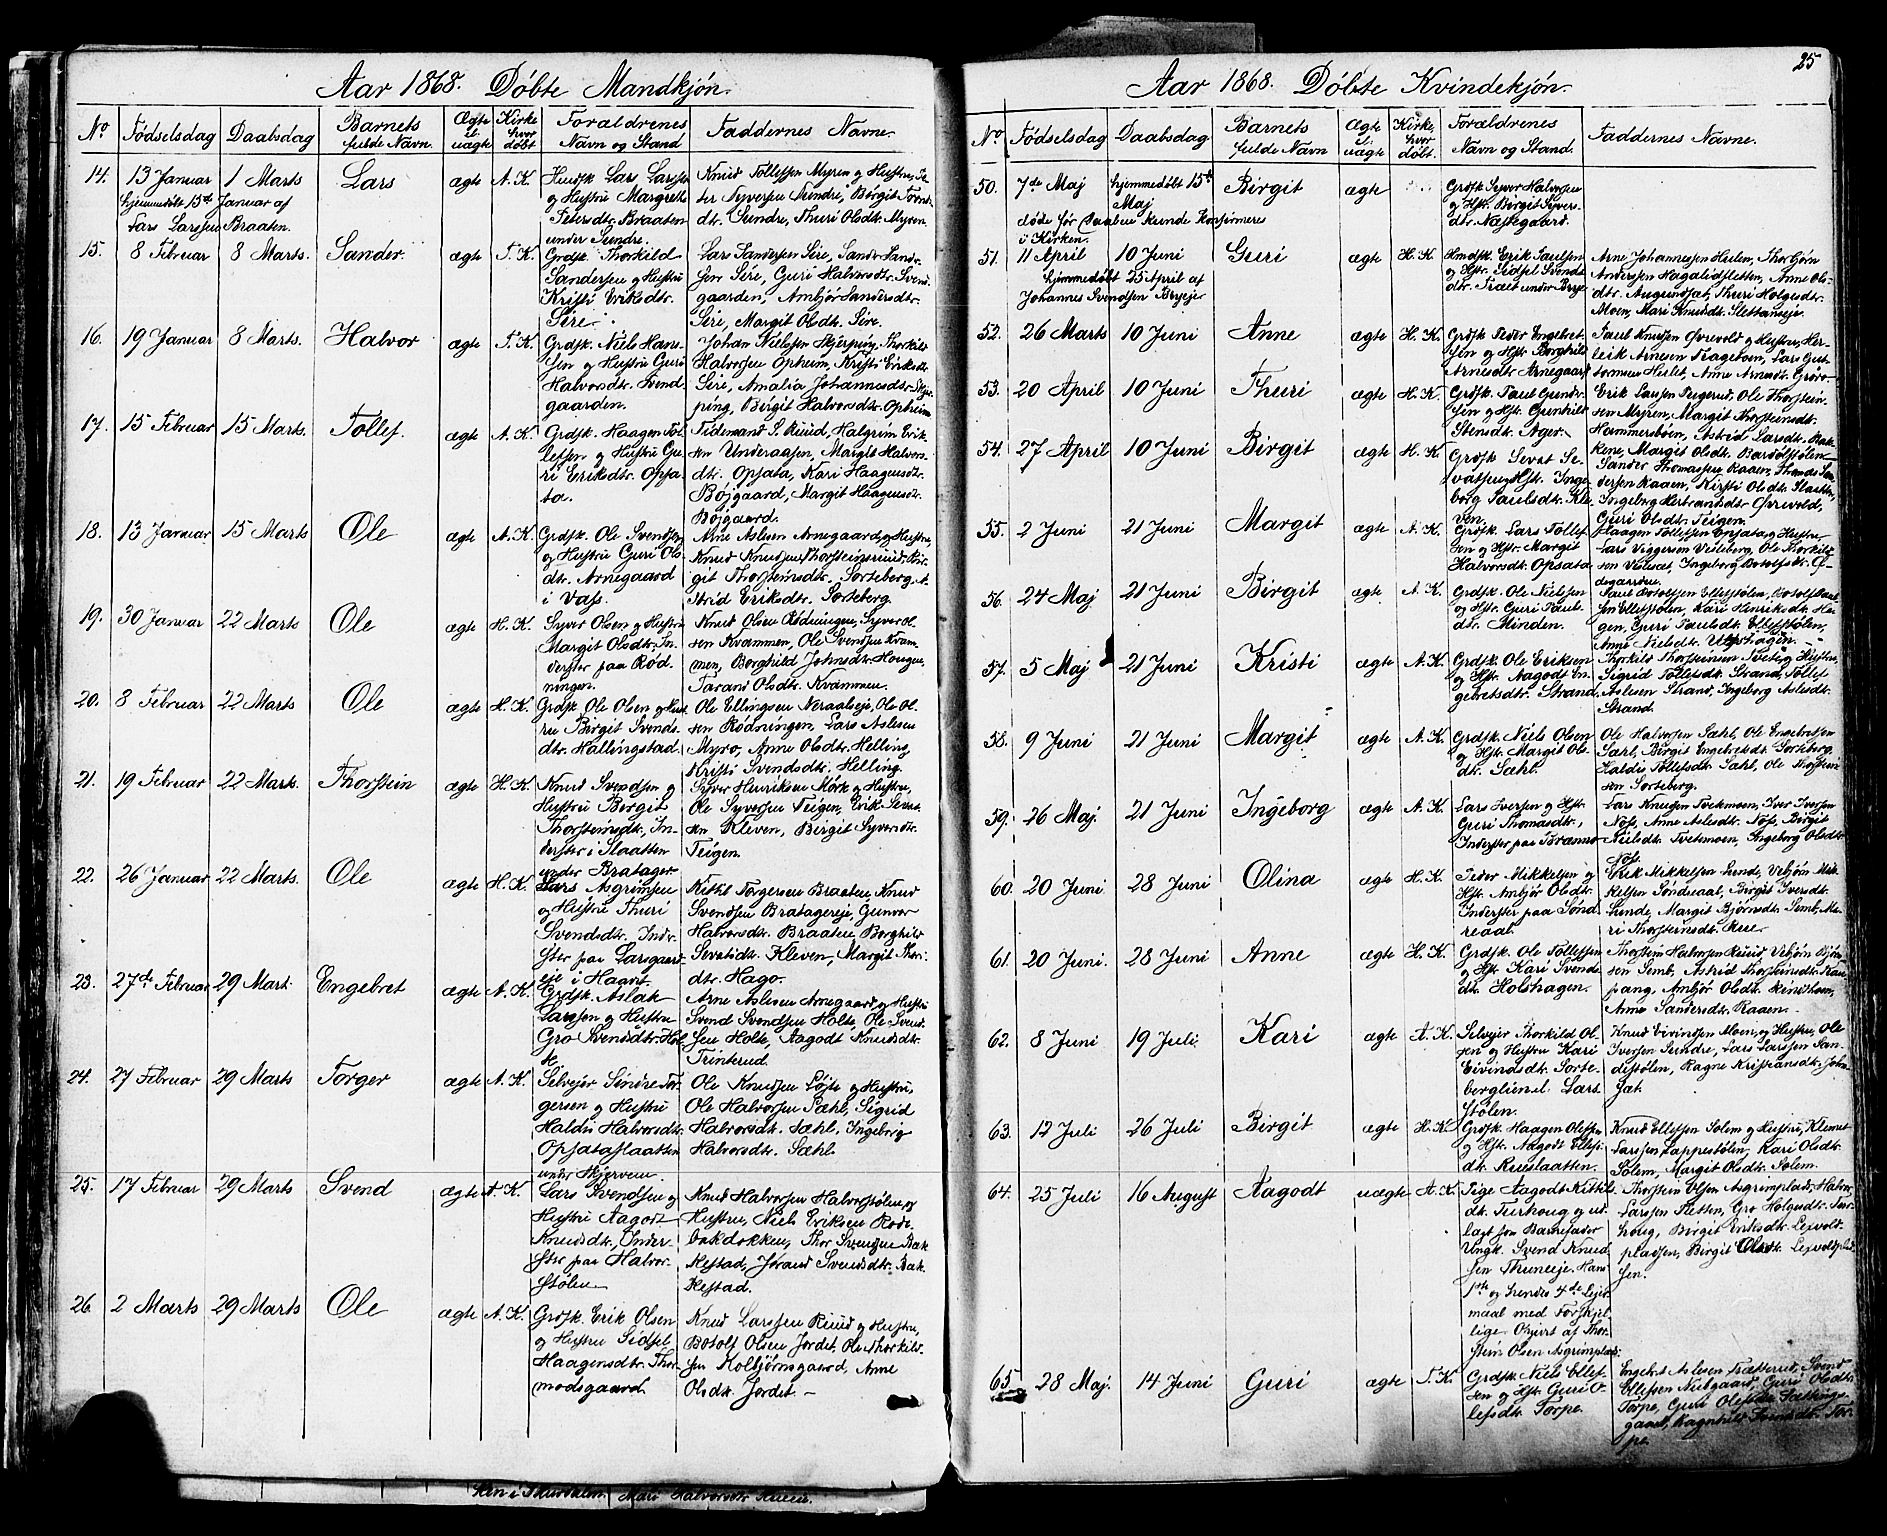 Aar 1868. Døbte Mandkjøn.
No Fødselsdag Daabsdag Barnets fulde Navn. Ægte el. uægte Kirke hvor døbt Forældrenes Navn og Stand Faddernes Navne.
14. 13 Januar 1 Marts Lars ægte A. K. Husmd. Lars Larssen
hjemmedøbt 15de Januar af
Lars Larssen Braaten.
og Hustru Margrethe
Braaten
under Sundre.
Knud Tollefsen Myren og Hustru,
Sundre, Birgit
dt. Sundre, Thuri Olsdt. Myren.
15. 8 Februar 8 Marts. Sander. ægte T. K. Grdsk. Thorkild
Sandersen og Hustru
Kristi Eriksdtr.
Sire.
Lars Sandersen Sire, Sander Sander-
sen Sire, Guri Halvorsdtr. Svend-
gaarden, Ambjør Sandersdtr.
Sire, Margit Olsdt. Sire.
16. 19 Januar 8 Marts. Halvor ægte T. K. Grdsk. Niels Han-
sen og Hustru Guri
Halvorsdtr. Svend
gaarden.
Johan Nielssen Skjerping, Thorkild
Halvorsen Opheim, Kristi Eriksdt.
Sire, Amalia Johannesdtr. Skjer-
ping, Birgit Halvorsdtr. Opheim
17. 15 Februar 15 Marts. Tollef. ægte A. K. Grdsk. Haagen Tol-
lefsen og Hustru Gu-
ri Eriksdtr. Opsa-
ta.
Tidemand S. Ruud, Halgrim Erik-
sen Underaasen, Margit Halvors-
dtr. Opsata, Kari Haagensdtr.
Bøjgaard, Margit Haagensdtr.
Bøjgaard.
18. 13 Januar 15 Marts Ole ægte A. K. Grdsk. Ole Svendsen
og Hustru Guri Ols-
dtr. Arnegaard
i Vats.
Arne Aslesen Arnegaard og Hustru,
Knud Knudsen Thorsteinsruud, Bir-
git Thorsteinsdtr. Sorteberg, A-
strid Eriksdtr. Sorteberg.
19. 30 Januar 22 Marts Ole ægte H. K. Syver Olsen og Hustru
Margit Olsdtr. In-
derster paa Rød-
ningen.
Knud Olsen Rødningen, Syver Ol-
sen Kvammen, Ole Svendsen Kvam-
men, Borghild Johnsdtr. Hougen,
Tarand Olsdtr. Kvammen.
20. 8 Februar 22 Marts Ole ægte H. K. Grdsk. Ole Olsen og Hust-
ru Birgit Svends-
dtr. Hallingstad
Ole Ellingsen Neraalseje, Ole Ol-
sen Rødningen, Lars Aslesen
Myro, Anne Olsdtr. Helling
Kristi Svendsdtr. Helling.
21. 19 Februar 22 Marts Thorstein ægte H. K. Knud Svendsen og
Hustru Bergit
Thorsteinsdtr. In-
derster i Slaatten
under Bratager
Syver Henriksen Mørk og Hustru,
Ole Syversen Teigen, Erik Sevat-
sen Kleven, Birgit Syversdtr.
Teigen.
22. 26 Januar 22 Marts. Ole ægte H. K. Lars Asgrimsen
og Hustru Thuri
Svendsdtr. Inder-
ster paa Larsgaard-
eje i Haavt.
Kittil Torgersen Braaten, Knud
Svendsen Bratagereje, Gunvor
Halvorsdtr. Braaten, Borghild
Sevatsdtr. Kleven, Margit Thor-
dtr. Hago.
23. 27de Februar 29 Marts Engebret ægte A. K. Grdsk. Aslak
Larssen og Hustru
Gro Svendsdtr. Hol-
te.
Arne Aslesen Arnegaard og Hustru
Svend Svendsen Holte, Ole Svend-
sen Holte, Aagodt Knudsdtr.
Trinterud.
24. 27 Februar 29 Marts Torger ægte A. K. Selvejer Sindre Tor-
gersen og Hustru
Haldis Halvorsdtr.
Opsataslaatten
under Skjerveim.
Ole Knudsen Løjte og Hustru,
Ole Halvorsen Sæhl, Sigrid
Halvorsdt. Sæhl, Ingebrig
Halvorsdt. Sæhl.
25. 17 Februar 29 Marts Svend ægte A. K. Lars Svendsen og
Hustru Aagodt
Knudsdtr. Inder-
ster paa Halvor-
stølen.
Knud Halvorsen Halvorstølen og
Hustru, Niels Eriksen Rode-
bakdokken, Thor Svendsen Bak-
kestad, Jørand Svendsdtr. Bak-
kestad.
26. 2 Marts 29 Marts Ole ægte A. K. Grdsk. Erik Olsen
og Hustru Sidsel
Haagensdtr. Thor-
modsgaard.
Knud Larssen Ruud og Hustru,
Botolf Olsen Jordet, Ole Thorkild-
sen Kolbjørnsgaard, Anne
Olsdtr. Jordet.—
Mari Halvorsdtr.
25
Aar 1868. Døbte Kvindekjøn.
No. Fødselsdag Daabsdag Barnets fulde Navn Ægte el. uægte Kirke, hvor døbt. Forældrenes Navn og Stand. Faddernes Navne.
50. 7de Maj hjemmedøbt 15de Maj Birgit ægte Grdsk. Syver Halvorsen
døde før Daaben kunde konfirmeres
i Kirken.
og Hstr. Birgit Syvers-
dtr. Næstegaard.
51. 11 April 10 Juni Guri ægte H. K. Hmdsk. Erik Paulsen
hjemmedøbt 25 April af
Johannes Svendsen Bryeje
og Hstr. Sidsel Svends-
dtr. Træet under Brye.
Arne Johannessen Heilen, Thorbjørn
Anderssen Hagalidsletten, Anne Ols-
dtr. Augundsæt, Thuri Holgesdtr.
Moen, Mari Knudsdt. Slettaneje.
52. 26 Marts 10 Juni Anne ægte H. K. Grdsk. Peder Engebret-
sen og Hstr. Borghild
Arnesdtr. Arnegaard
Paul Knudsen Øvrevold og Hustru, Her-
leik Arnesen Trageton, Lars Gut-
tormsen Hulet, Anne Arnesdt. Grøv-
53. 20 April 10 Juni Thuri ægte H. K. Grdsk. Paul Gunder-
sen og Hstr. Gunhild
Stensdtr. Ager.
Erik Larssen Rugerud, Ole Thorstein-
sen Myren, Margit Thorsteinsdt.
Hammersbøen, Astrid Larsdt. Bak-
kene, Margit Olsdt. Bardolstølen
54. 27 April 10 Juni Birgit ægte H. K. Grdsk. Sevat Se-
vatsen og Hstr. Inge-
borg Paulsdtr. Kle-
ven.
Sander Thomassen Raaen,
dersen Raaen, Kirsti Olsdt. Slaatten,
Ingeborg Herbrandsdtr. Øvrevold,
Guri Olsdtr. Teigen.
55. 2 Juni 21 Juni Margit ægte A. K. Grdsk. Lars Tollef-
sen og Hstr. Margit
Halvorsdt. Opsata
Haagen Tollefsen Opsata og Hustru,
Lars Viggersen Villeborg, Ole Thorkild-
sen Villand, Ingeborg Botolfsdtr.
56. 24 Maj 21 Juni Birgit ægte A. K. Grdsk. Ole Nielsen
og Hstr. Guri Paul-
dtr. Minden.
Paul Botolfsen Ellefstølen, Botolf Paul-
sen Ellefstølen, Kari Henriksdt. Hau-
gen, Guri Paulsdt. Ellefstølen,
Anne Nielsdt.
57. 5 Maj 21 Juni Kristi ægte A. K. Grdsk. Ole Eriksen
og Hstr. Aagodt En-
gebretsdtr. Strand
Thorkild Thorsteinsen Tveito og Hustru,
Sigrid Tollefsdt. Strand, Tollef
Aslesen Strand, Ingeborg Aslesdt.
Strand.
58. 9 Juni 21 Juni Margit ægte A. K. Grdsk. Niels Olsen
og Hstr. Margit Ols-
dt. Sæhl.
Ole Halvorsen Sæhl, Ole Engebretsen
Sæhl, Birgit Engebretsdt. Sorteberg,
Haldis Tollefsdt. Sæhl, Ole Thorstein-
sen Sorteberg.
59. 26 Maj. 21 Juni Ingeborg ægte A. K. Lars Iversen og Hstr.
Guri Thomasdtr.,
Inderster paa Bramno
Lars Knudsen Tvetmoen, Iver Iversen
Nøss, Anne Aslesdt. Nøss, Birgit
Nielsdt. Tvetmoen, Ingeborg Olsdt.
Nøss.
60. 20 Juni 28 Juni Olina ægte H. K. Peder Mikkelsen og
Hstr. Ambjør Olsdtr.
Inderster paa Sønd-
reaal.
Erik Mikkelsen Lunde, Vebjørn Mik-
kelsen Søndreaal, Birgit Iversdt.
Lunde, Margit Bjørnsdt. Semb, Ma-
ri Thorsteinsdt. Rue.
61. 20 Juni. 28 Juni Anne ægte H. K. Grdsk. Ole Tollefsen
og Hstr. Kari Svends-
dt. Holshagen.
Thorstein Halvorsen Ruud, Vebjørn Bjørn-
sen Semb, Astrid Thorsteinsdt. Kau-
pang, Ambjør Olsdt. Rindheim,
Anne Sandersdt. Raaen.
62. 8 Juni 19 Juli Kari ægte A. K. Selvejer Thorkild Ol-
sen og Hustru Kari
Eivindsdt. Sorte-
berglien el. Lars-
stølen.
Knud Eivindsen Moen og Hustru, Ole
Iversen Sundre, Lars Larssen San-
distølen, Ragne Kristiansdt. John-
sæt.
63. 12 Juli 26 Juli Birgit ægte H. K. Grdsk. Haagen Olsen
og Hstr. Aagodt Ellefs-
dt. Rueslaatten.
Knud Ellefsen Solem og Hustru, Klemet
Larssen Lappestølen, Kari Olsdt.
Solem, Margit Olsdt. Solem.
64. 25 Juli 16 August Aagodt uægte A. K. Pige Aagodt Kittils-
dt. Turhoug og ud-
lagt som Barnefader
Ungk. Svend Knud-
sen Thuneeje. Hans
1ste og hendes 4de Lejer-
maal med Forskjel-
lige. Opivst af Thor-
stein Olsen Asgrimplads.
Thorstein Olsen Asgrimplads, Halvor
Larssen Sletten, Gro Holgesdt. Tur-
houg, Birgit Eriksdt. Lejvolt-
pladsen, Birgit Olsdt. Lejvoltplad-
sen.
65 28 Maj. 14 Juni Guri ægte T. K. Grdsk. Niels Ellef-
sen og Hstr. Guri O-
lefsdt. Torpe.
Engebret Aslesen Trætterud, Svend
Ellefsen Nubgaard, Guri Olsdt.
Torpe, Guri Sætrings-
gaard, Ragnhild Svendsdt. Tor-
pe.